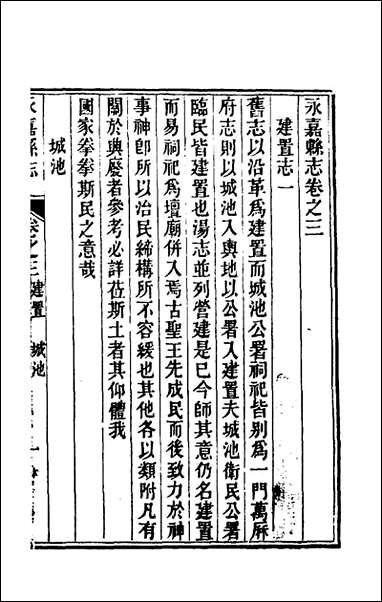 永嘉縣志卷之三
建置志一
舊志以沿革爲建置而城池公署祠祀皆别爲一門萬厤
府志則以城池入輿地以公署入建置夫城池衛民公署
臨民皆建置也湯志並列營建是已今師其意仍名建置
而易祠祀爲壇廟併入焉古聖王先成民而後致力於神
事神卽所以治民締構所不容緩也其他各以類附凡有
關於典廢者參考必詳莅斯土者其仰體我
國家拳拳斯民之意哉
城池
永嘉縣志
卷之三 建置 城池
一